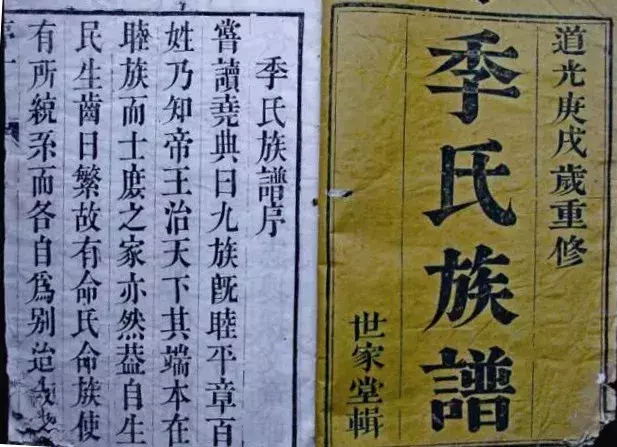 道光庚戌歲重修
季氏族譜
世家堂輯
季氏族譜序
嘗讀堯典曰九族既睦平章百
姓乃知帝王治天下其端本在
睦族而士庶之家亦然葢自生
民生齒日繁故有命氏命族使
有所統系而各自為别迨